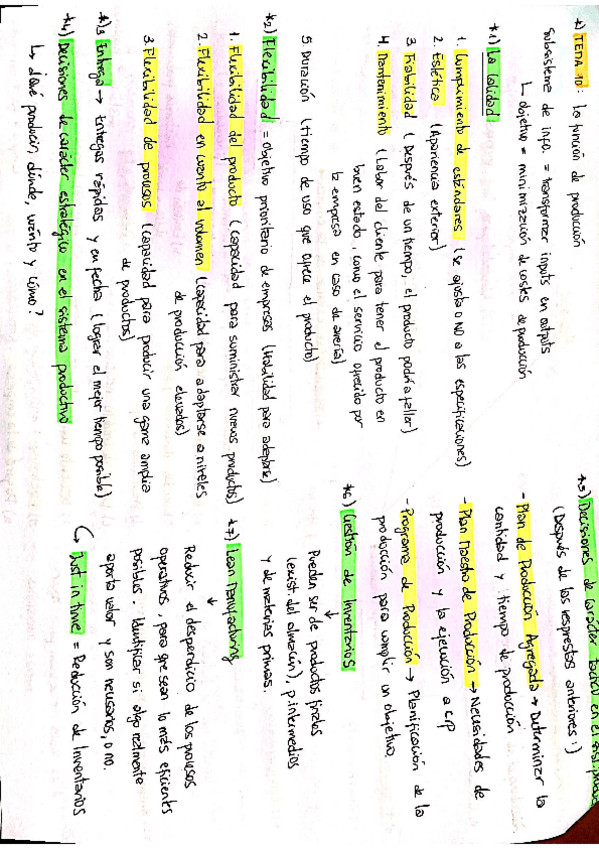 *) TEMA 10: La función de producción
Subsistema de infra. = transformar inputs en outputs
↳ objetivo = minimización de costes de producción
*1) La Calidad
1. Cumplimiento de estándares (se ajusta o NO a las especificaciones)
2. Estética (Apariencia exterior)
3. Fiabilidad (Después de un tiempo, el producto podría fallar)
4. Mantenimiento (Labor del cliente para tener el producto en
buen estado, como el servicio ofrecido por
la empresa en caso de avería)
5. Duración (tiempo de uso que ofrece el producto)
*2) Flexibilidad = Objetivo prioritario de empresas (Habilidad para adaptarse)
1. Flexibilidad del producto (capacidad para suministrar nuevos productos)
2. Flexibilidad en cuanto al volumen (capacidad para adaptarse a niveles
de producción elevados)
3. Flexibilidad de procesos (capacidad para producir una gama amplia
de productos)
*)3 Entrega → Entregas rápidas y en fecha (lograr el mejor tiempo posible)
*4) Decisiones de carácter estratégico en el sistema productivo
↳ ¿Qué producir, dónde, cuánto y cómo?
*5) Decisiones de carácter táctico en el sist. produc
(Después de las respuestas anteriores :)
- Plan de Producción Agregada → Determinar la
cantidad y tiempo de producción
- Plan Maestro de Producción → Necesidades de
producción y la ejecución a c/p
- Programa de Producción → Planificación de la
producción para cumplir un objetivo.
*6) Gestión de Inventarios
↓
Pueden ser de productos finales
(exist. del almacén), p. intermedios
y de materias primas.
*7) Lean Manufacturing
↓
Reducir el desperdicio de los procesos
operativos, para que sean lo más eficientes
posibles. Identificar si algo realmente
aporta valor y son necesarios, o no.
↳ Just in time = Reducción de Inventarios